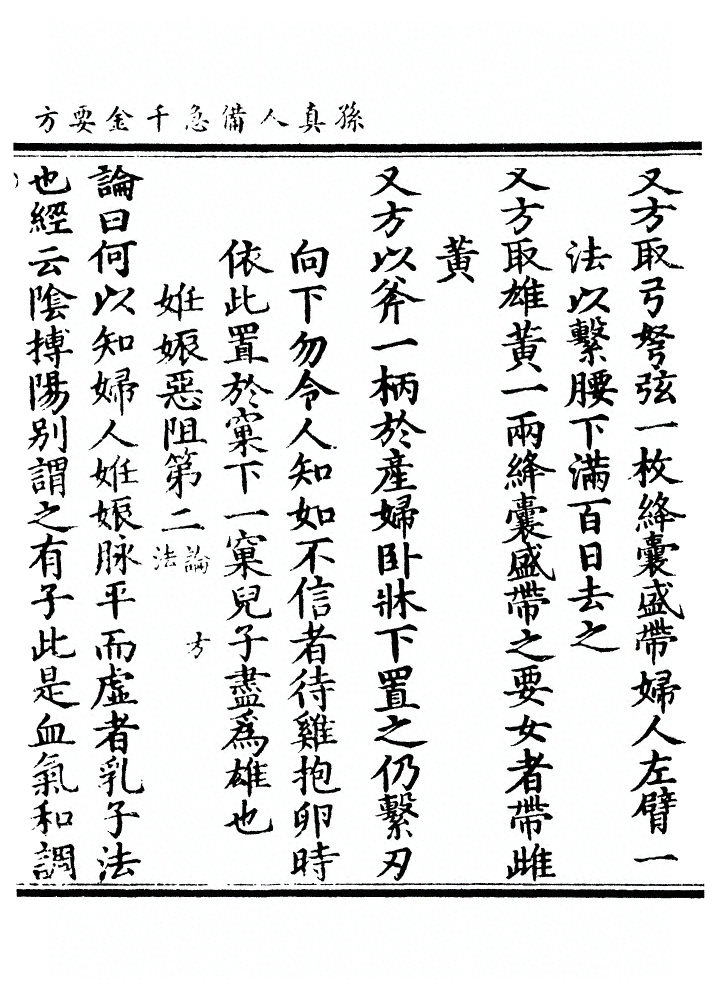 孫真人備急千金要方
又方取弓弩弦一枚絳囊盛帶婦人左臂一
法以繫腰下滿百日去之
又方取雄黃一兩絳囊盛帶之要女者帶雌
黃
又方以斧一柄於產婦卧牀下置之仍繫刃
向下勿令人知如不信者待雞抱卵時
依此置於窠下一窠兒子盡為雄也
妊娠惡阻第二論方法
論曰何以知婦人妊娠脉平而虛者乳子法
也經云陰搏陽別謂之有子此是血氣和調